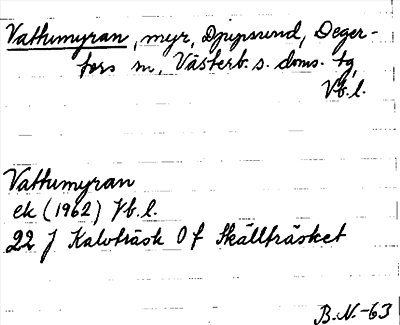 Vattumyran, myr, Djupsund, Deger-
fors sn, Västerb. s. doms. tg,
Vb. l.
Vattumyran
ek (1962) Vb. l.
22 J Kalvträsk 0 f Skällträsket
B.N.-63